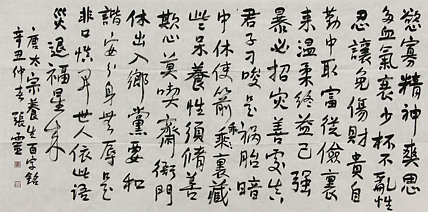 慾寡精神爽思
多血氣衰少杯不亂性
忍讓免傷財貴自
勤中取富從儉裏
來溫柔終益己強
暴必招災善處真
君子刁唆是禍胎暗
中休使箭乖裏藏
些呆養性須脩善
欺心莫喫齋衙門
休出入鄉黨要和
諧安分身無辱是
非口慎開世人依此語
災退福星來
唐太宗養生百字銘
辛丑仲春張靈